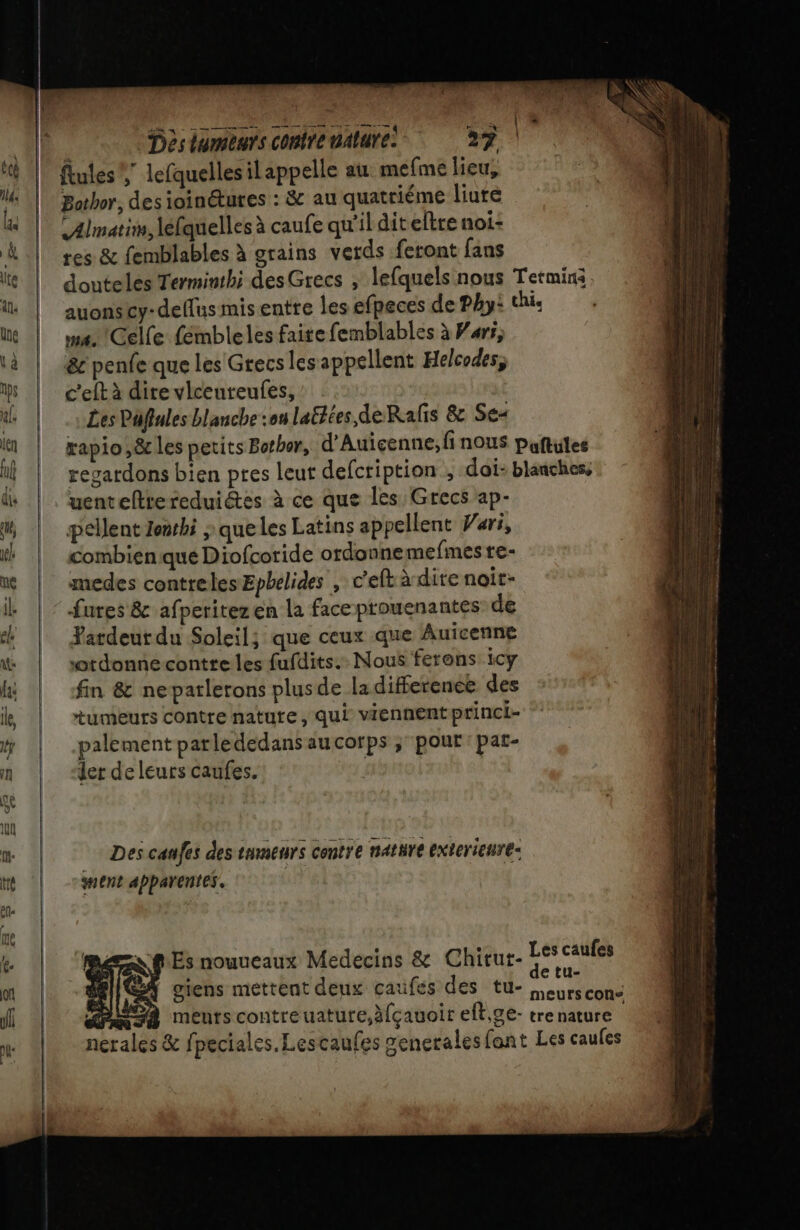 Des tumeurs contre nature. 27
ſtules, leſquelles il appelle au meſme lieu,
Bothor, des ioinctures : & au quatriéme liure
Almatim, leſquelles à cauſe qu'il dit eſtre noi-
res & ſemblables à grains verds ſeront ſans
doute les Terminthi des Grecs , leſquels nous Termin-
auons cy-deſſus mis entre les eſpeces de Phy- thi.
ma. Celſe ſemble les faire ſemblables à Vari,
& penſe que les Grecs les appellent Helcodes,
c'eſt à dire vlceureuſes,
Les Puſtules blanche : ou lactées, de Raſis & Se-
rapio, & les petits Bothor, d'Auicenne, ſi nous Puſtules
regardons bien pres leur deſcription , doi- blanches.
uent eſtre reduictes à ce que les Grecs ap-
pellent Ionthi , que les Latins appellent Vari,
combien que Dioſcoride ordonne meſmes re-
medes contre les Ephelides , c'eſt à dire noir-
ſures & aſperitez en la face prouenantes de
l'ardeur du Soleil; que ceux que Auicenne
ordonne contre les ſuſdits. Nous ferons icy
fin & ne parlerons plus de la difference des
tumeurs contre nature, qui viennent princi-
palement par le dedans au corps , pour par-
ler de leurs cauſes.
Des cauſes des tumeurs contre nature exterieure-
ment apparentes.
LEs nouueaux Medecins & Chirur- Les cauſes
de tu-
giens mettent deux cauſes des tu- meurs con-
meurs contre nature, àſçauoir eſt, ge- tre nature
nerales & ſpeciales. Les cauſes generales ſont Les cauſes